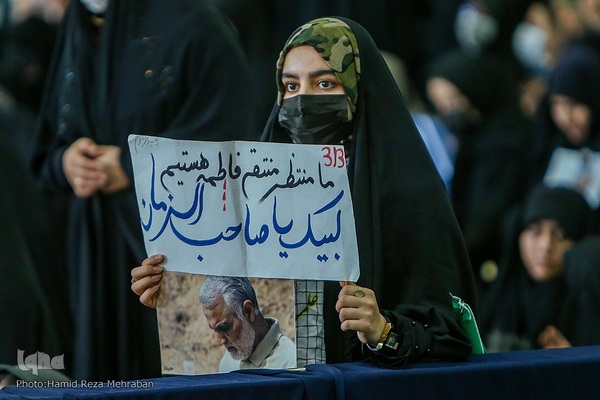 313
ما منتظر منتقم فاطمه هستیم
لبیک یا صاحب الزمان
iqna
Photo:Hamid Reza Mehraban